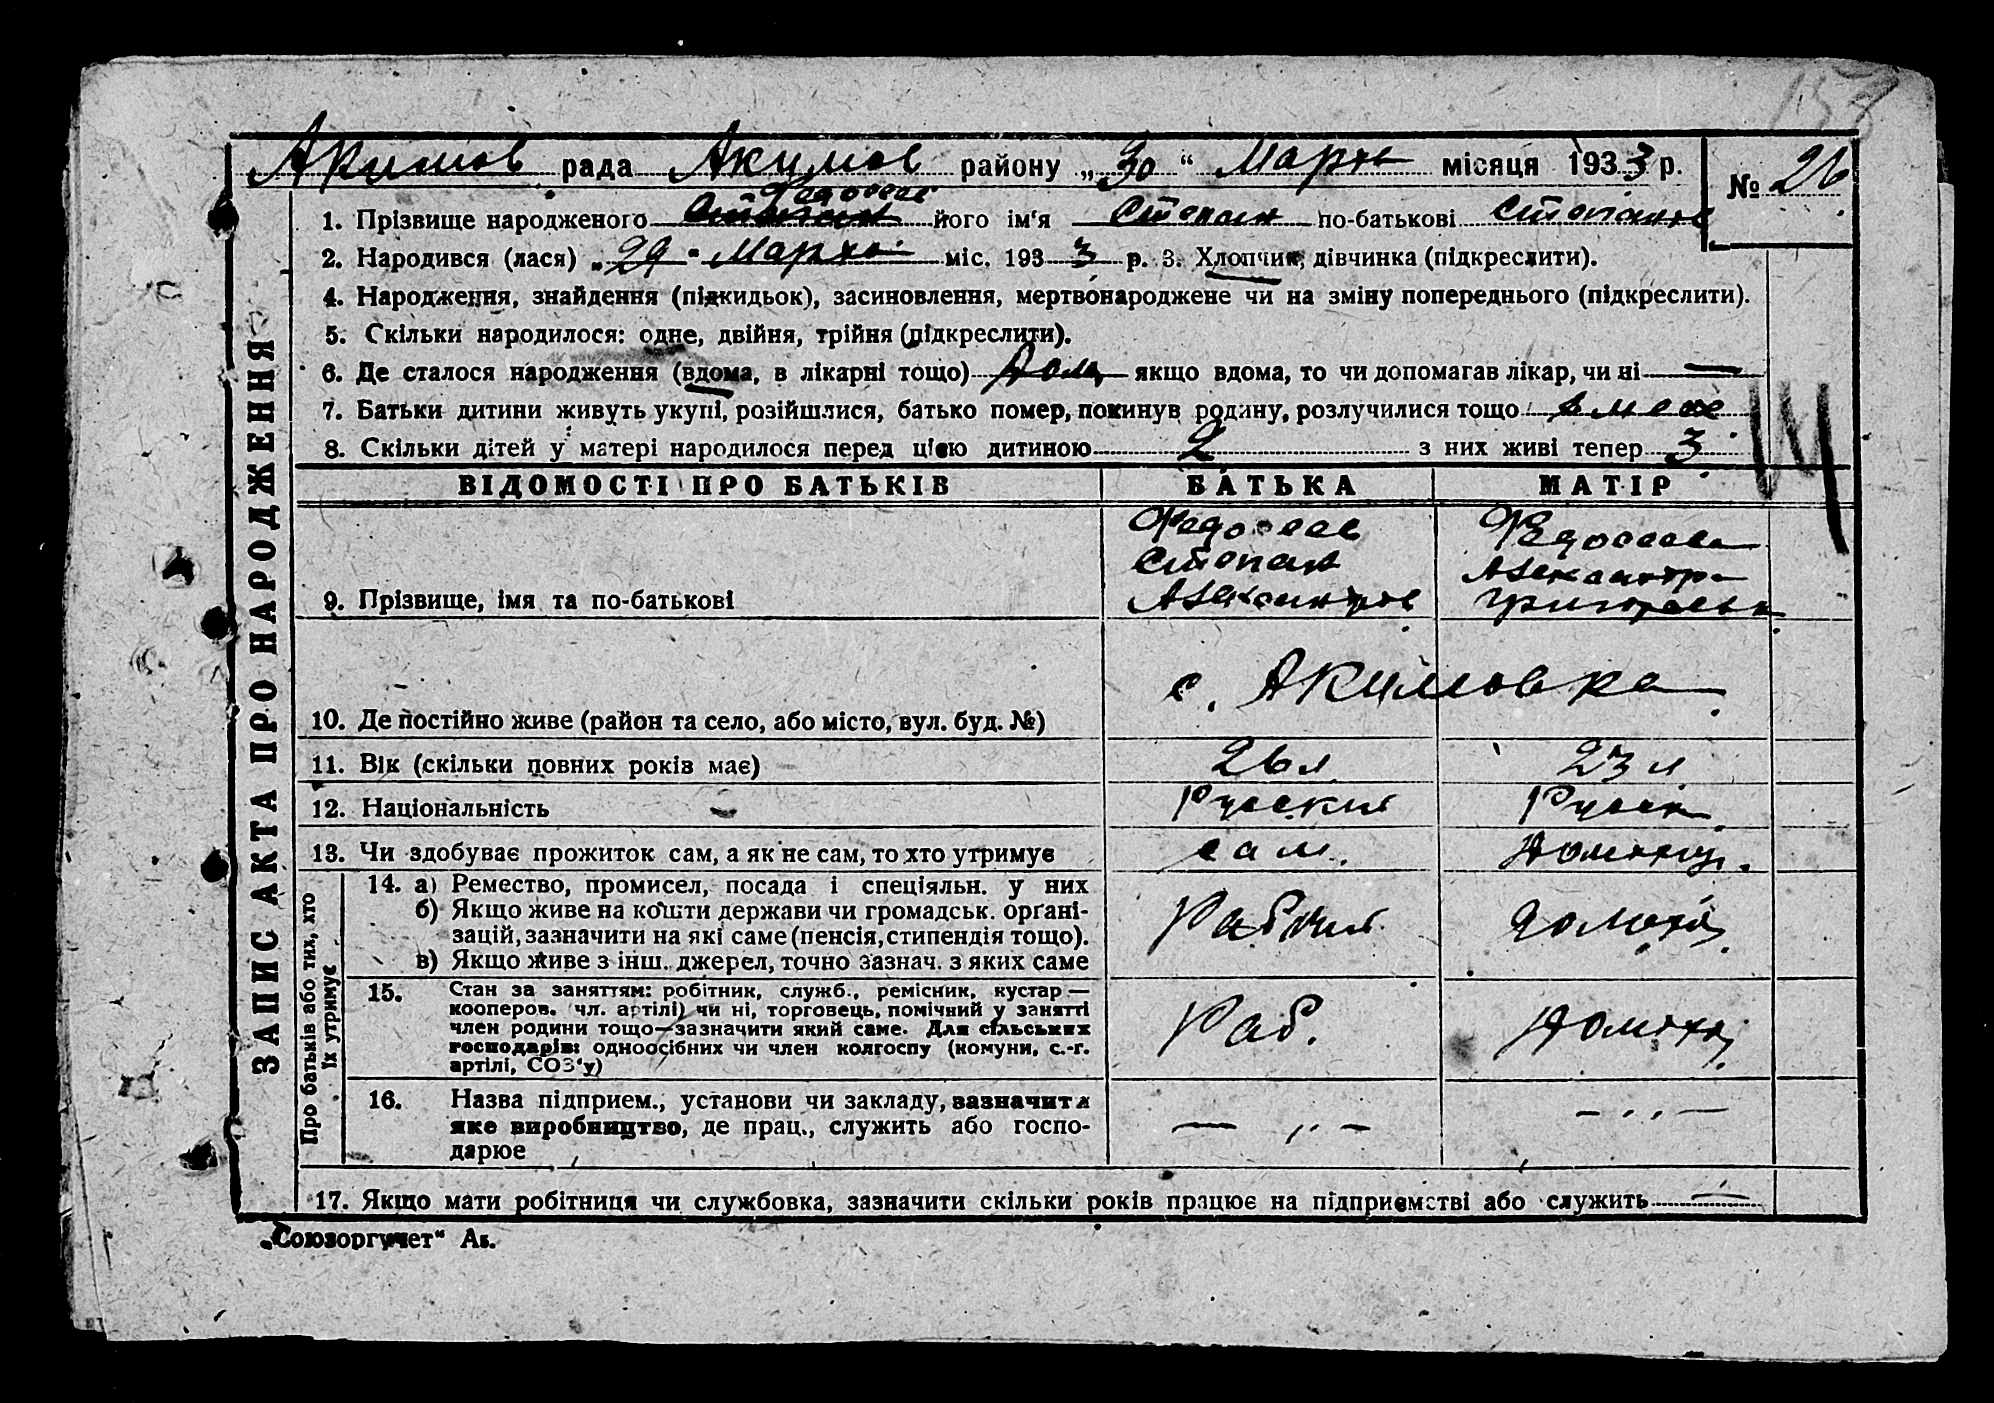 158
Акимов рада Акимов району „30“ Марта місяця 1933 р. № 26
Федосеев
1. Прізвище народженого Степан його ім'я Степан по-батькові Степанов
2. Народився (лася) „29" Марта міс. 1933 р. 3. Хлопчик, дівчинка (підкреслити).
4. Народження, знайдення (підкидьок), засиновлення, мертвонароджене чи на зміну попереднього (підкреслити).
5. Скільки народилося: одне, двійня, трійня (підкреслити).
6. Де сталося народження (вдома, в лікарні тощо) Дома якщо вдома, то чи допомагав лікар, чи ні —
7. Батьки дитини живуть укупі, розійшлися, батько помер, покинув родину, розлучилися тощо вместе
8. Скільки дітей у матері народилося перед цією дитиною 2 з них живі тепер 3
ЗАПИС АКТА ПРО НАРОДЖЕННЯ
ВІДОМОСТІ ПРО БАТЬКІВ БАТЬКА МАТІР
9. Прізвище, імя та по-батькові
Федосеев
Степан
Александров
Федосеева
Александра
Григорьевн
10. Де постійно живе (район та село, або місто, вул. буд. №) с. Акимовка
11. Вік (скільки повних років має) 26 л 23 л
12. Національність Руский Руск
13. Чи здобуває прожиток сам, а як не сам, то хто утримує сам. Домохоз.
Про батьків або тих, хто
їх утримує
14. а) Ремество, промисел, посада і спеціяльн. у них
б) Якщо живе на кошти держави чи громадськ. органі-
зацій, зазначити на які саме (пенсія, стипендія тощо).
в) Якщо живе з інш. джерел, точно зазнач. з яких саме
Рабочий домохоз
15. Стан за заняттям: робітник, служб., ремісник, кустар —
кооперов. чл. артілі) чи ні, торговець, помічний у занятті
член родини тощо—зазначити який саме. Для сільських
господарів: одноосібних чи член колгоспу (комуни, с.-г.
артілі, СОЗ'у)
Раб. Домохоз
16. Назва підприєм., установи чи закладу, зазначити
яке виробництво, де прац., служить або госпо-
дарює
— „ — — „ —
17. Якщо мати робітниця чи службовка, зазначити скільки років працює на підприємстві або служить —
„Союзоргучет“ Аз.